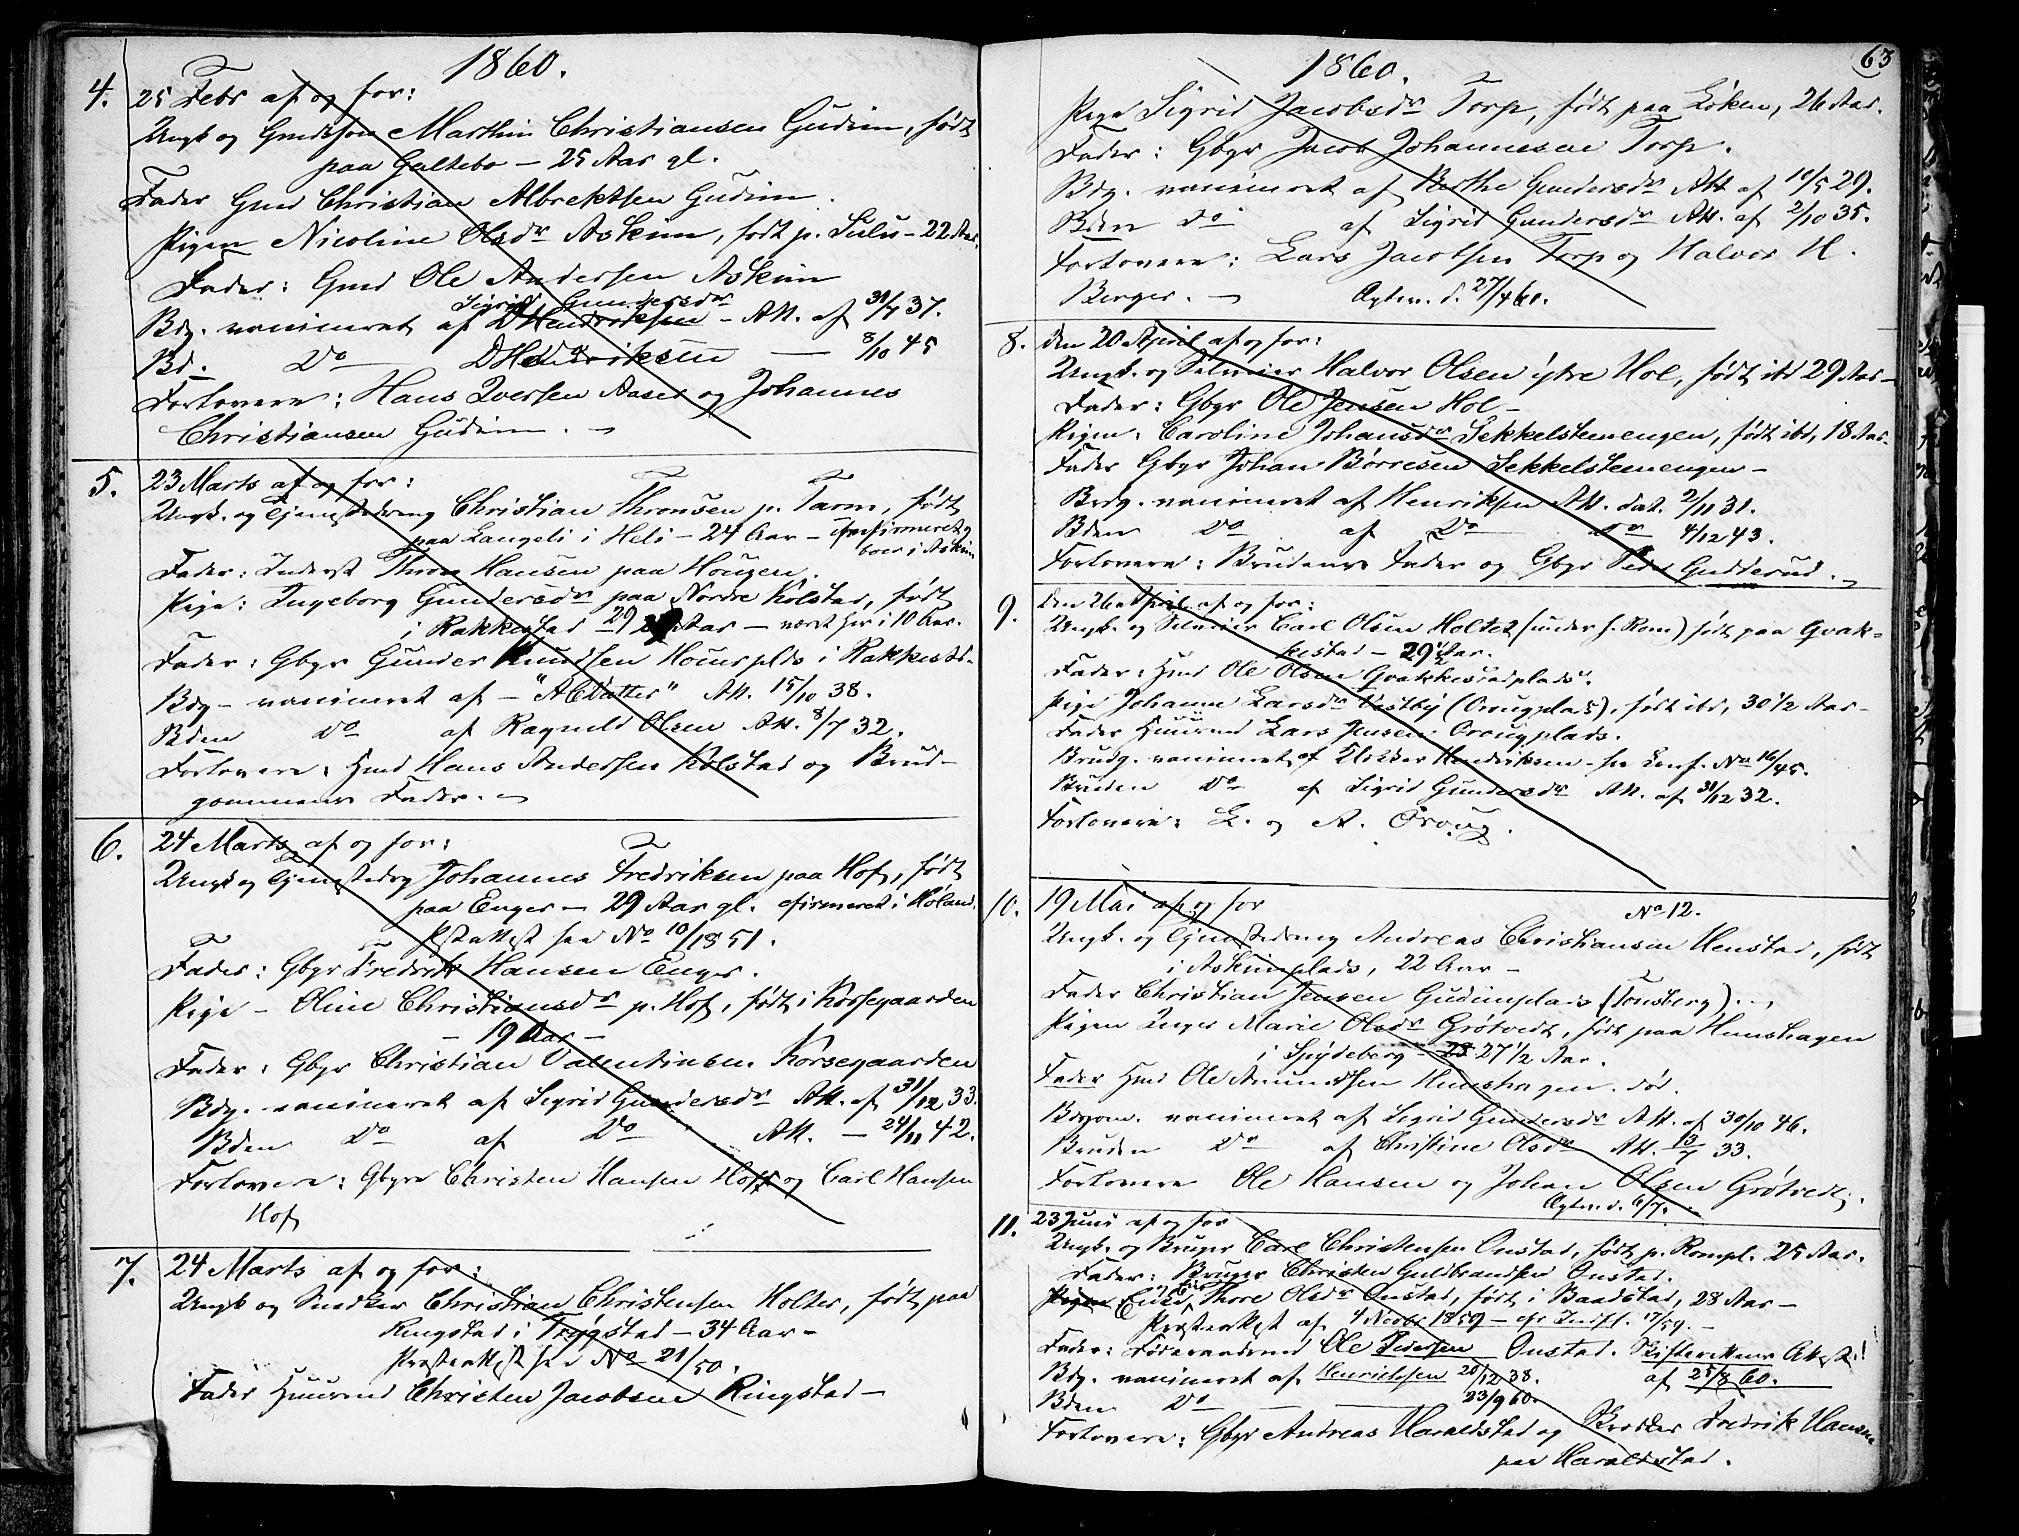 1860.
4. 25 Febr af og for:
Ungk og Gmdssøn Marthin Christiansen Gudim, født
paa Galtebo – 25 Aar gl.
Fader Gmd Christian Albrektsen Gudim.
Pigen Nicoline Olsdr Askim, født p. Sulu – 22 Aar
Fader: Gmd Ole Andersen Askim
Sigrid Gundersdr
Bdg. vaccineret af DHendriksen – Att. af 31/7 37.
Bd. Do DHendriksen — 8/10 45
Forlovere: Hans Iversen Aaser og Johannes
Christiansen Gudim.
5. 23 Marts af og for:
Ungk. og Tjenestedreng Christian Thronsen p. Tarm, født
paa Langeli i Heli – 24 Aar – confirmeret
boer i Askim
Fader: Inderst Thron Hansen paa Hougen.
Pige: Ingeborg Gundersdr paa Nordre Kolstad, født
i Rakkestad 29 Aar – været her i 10 Aar.
Fader: Gbgr Gunder Knudsen plds i Rakkestd.
Bdg – vaccineret af – "ACVatter" Att. 15/10 38.
Bden do af Ragnild Olsen Att. 8/7 32.
Forlovere: Hmd Hans Andersen Kolstad og Brud-
gommens Fader.
6. 24 Marts af og for:
Ungk og Tjenestedrg Johannes Fredriksen paa Hof, født
paa Enger – 29 Aar gl. cfirmeret i Høland.
Pstattest No 10/1851.
Fader: Gbgr Fredrik Hansen Enger.
Pige – Oline Christiansdr p. Hof, født i Korsegaarden
– 19 Aar –
Fader: Gbgr Christian Valentinsen Korsegaarden
Bdg. vaccineret af Sigrid Gundersdr Att. af 31/12 33.
Bden Do af Do Att. – 24/11 42.
Forlovere: Gbgre Christen Hansen Hoff og Carl Hansen
Hof
7. 24 Marts af og for:
Ungk og Snedker Christian Christensen Holter, født paa
Ringstad i Trøgstad – 34 Aar –
Prestattest No 21/50.
Fader Huusmd Christen Jacobsen Ringstad –
63
1860.
Pige Sigrid Jacobsdr Torp, født paa Løken, 26 Aar.
Fader: Gbgr Jacob Johannesen Torp.
Bdg. vaccineret af Berthe Gundersdr Att af 10/5 29.
Bden Do af Sigrid Gundersdr Att. af 2/10 35.
Forlovere: Lars Jacobsen Torp og Halvor H.
Berger. – Egtev. d. 27/4 60.
8. den 20 April af og for:
Ungk. og Selveier Halvor Olsen østre Hol, født ibd 29 Aar –
Fader: Gbgr Ole Jensen Hol –
Pigen: Caroline Johansdr Sekkelstenengen, født ibd, 18 Aar –
Fader Gbgr Johan Børresen Sekkelstenengen –
Brdg. vaccineret af Henriksen Att. dat. 2/11 31.
Bden Do af Do Do 4/12 43.
Forlovere: Brudens Fader og Gbgr Peder Gudderud.
9. den 26 April af og for:
Ungk. og Selveier Carl Olsen Holtet (under s. Rom) født paa Gvak-
kestad – 29 1/2 Aar.
Fader: Hmd Ole Olsen Gvakkestadplads.
Pige Johanne Larsdr Vestby (Ovougplads), født ibd, 30 1/2 Aar –
Fader Huusmd Lars Jensen Ovougplads.
Brudg. vaccineret af Klokker Hendriksen – se Conf. No 16/45.
Bruden Do af Sigrid Gundersdr Att. af 31/12 32.
Forlovere: L. og A. Ovoug.
10. 19 Mai af og for No 12.
Ungk. og Tjenestedreng Andreas Christiansen Henstad, født
i Askimplads, 22 Aar –
Fader Christian Jensen Gudimplads (Tonsberg).
Pigen Inger Marie Olsdr Grøtvedt, født paa Hunshagen
i Spydeberg – 27 1/2 Aar.
Fader Hmd Ole Amundsen Hunshagen. død.
Bdgom. vaccineret af Sigrid Gundersdr Att. af 30/10 46.
Bruden Do af Christine Olsdr Att. 13/7 33.
Forlovere Ole Hansen og Johan Olsen Grøtvedt.
Egtev. d. 6/7.
11. 23 Juni af og for
Ungk. og Bruger Carl Christensen Onstad, født p. Rompl. 25 Aar.
Fader: Bruger Christen Guldbrandsen Onstad.
Pigen Enke Thore Olsdr Onstad, født i Baadstad, 28 Aar –
Prestattest af 4 Novbr 1859 – cfr Indfl. 17/59. –
Fader: Føderaadsmd Ole Pedersen Onstad. Skifterettens Attest!
Bdg. vaccineret af Henrichsen 20/12 38. af 25/8 60.
Bden Do — 23/9 60.
Forlovere: Gbgr Andreas Haraldstad og Broder Fredrik Hansen
paa Haraldstad.